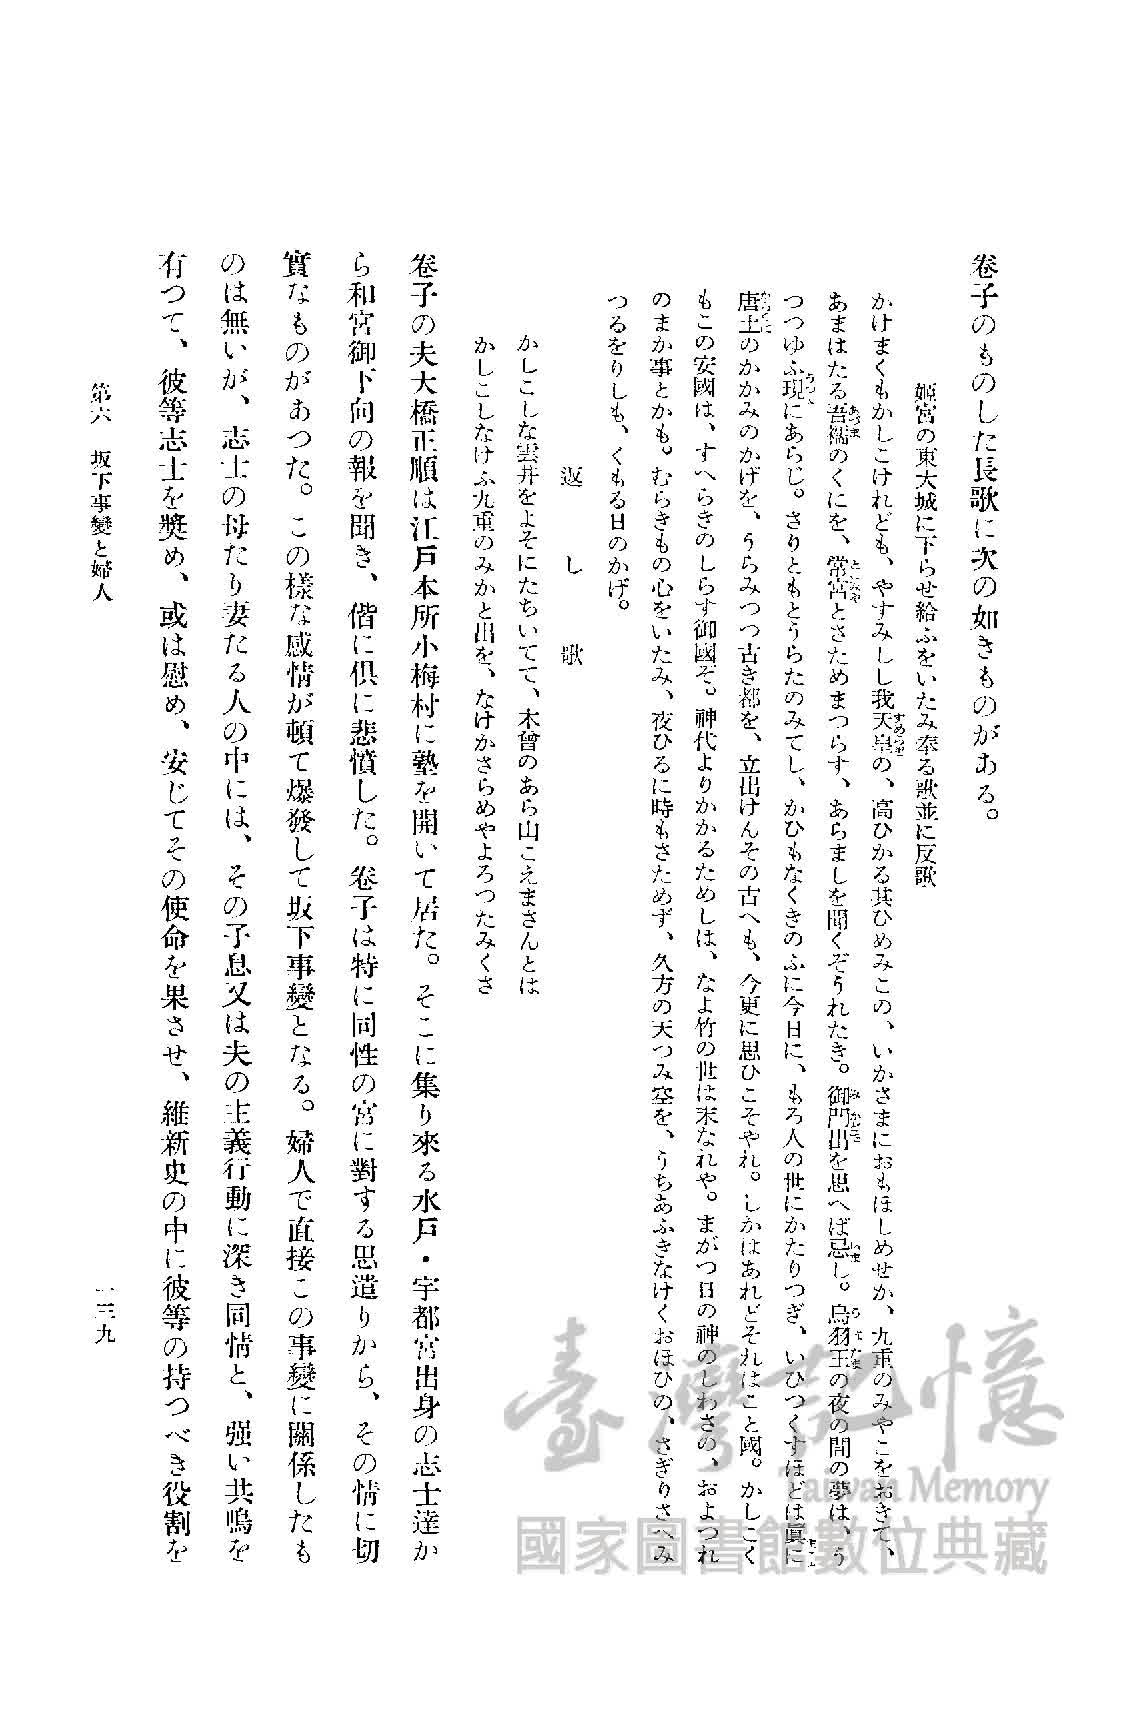 卷子のものした長歌に次の如きものがある。
姫宮の東大城に下らせ給ふをいたみ奉る歌並に反歌
かけまくもかしこけれども、やすみしし我天皇の、高ひかる其ひめみこの、いかさまにおもほしめせか、九重のみやこをおきて、
あまはたる吾嬬のくにを、常宮とさためまつらす、あらましを聞くぞうれたき。御門出を思へば忌し。烏羽玉の夜の間の夢は、う
つつゆふ現にあらじ。さりともとうらたのみてし、かひもなくきのふに今日に、もろ人の世にかたりつぎ、いひつくすほどは眞に
唐土のかかみのかげを、うらみつつ古き都を、立出けんその古へも、今更に思ひこそやれ。しかはあれどそれはこと國。かしこく
もこの安國は、すへらきのしらす御國ぞ。神代よりかかるためしは、なよ竹の世は末なれや。まがつ日の神のしわさの、およつれ
のまか事とかも。むらきもの心をいたみ、夜ひるに時もさためず、久方の天つみ空を、うちあふきなけくおほひの、さぎりさへみ
つるをりしも、くもる日のかげ。
返し歌
かしこしな雲井をよそにたちいてて、木曾のあら山こえまさんとは
かしこしなけふ九重のみかと出を、なけかさらめやよろつたみくさ
卷子の夫大橋正順は江戸本所小梅村に塾を開いて居た。そこに集り來る水戸・宇都宮出身の志士達か
ら和宮御下向の報を聞き、偕に倶に悲憤した。卷子は特に同性の宮に對する思遣りから、その情に切
實なものがあつた。この樣な感情が頓て爆發して坂下事變となる。婦人で直接この事變に關係したも
のは無いが、志士の母たり妻たる人の中には、その子息又は夫の主義行動に深き同情と、强い共鳴を
有つて、彼等志士を奬め、或は慰め、安じてその使命を果させ、維新史の中に彼等の持つべき役割を
第六　坂下事變と婦人
一三九
臺灣記憶
Taiwan Memory
國家圖書館數位典藏